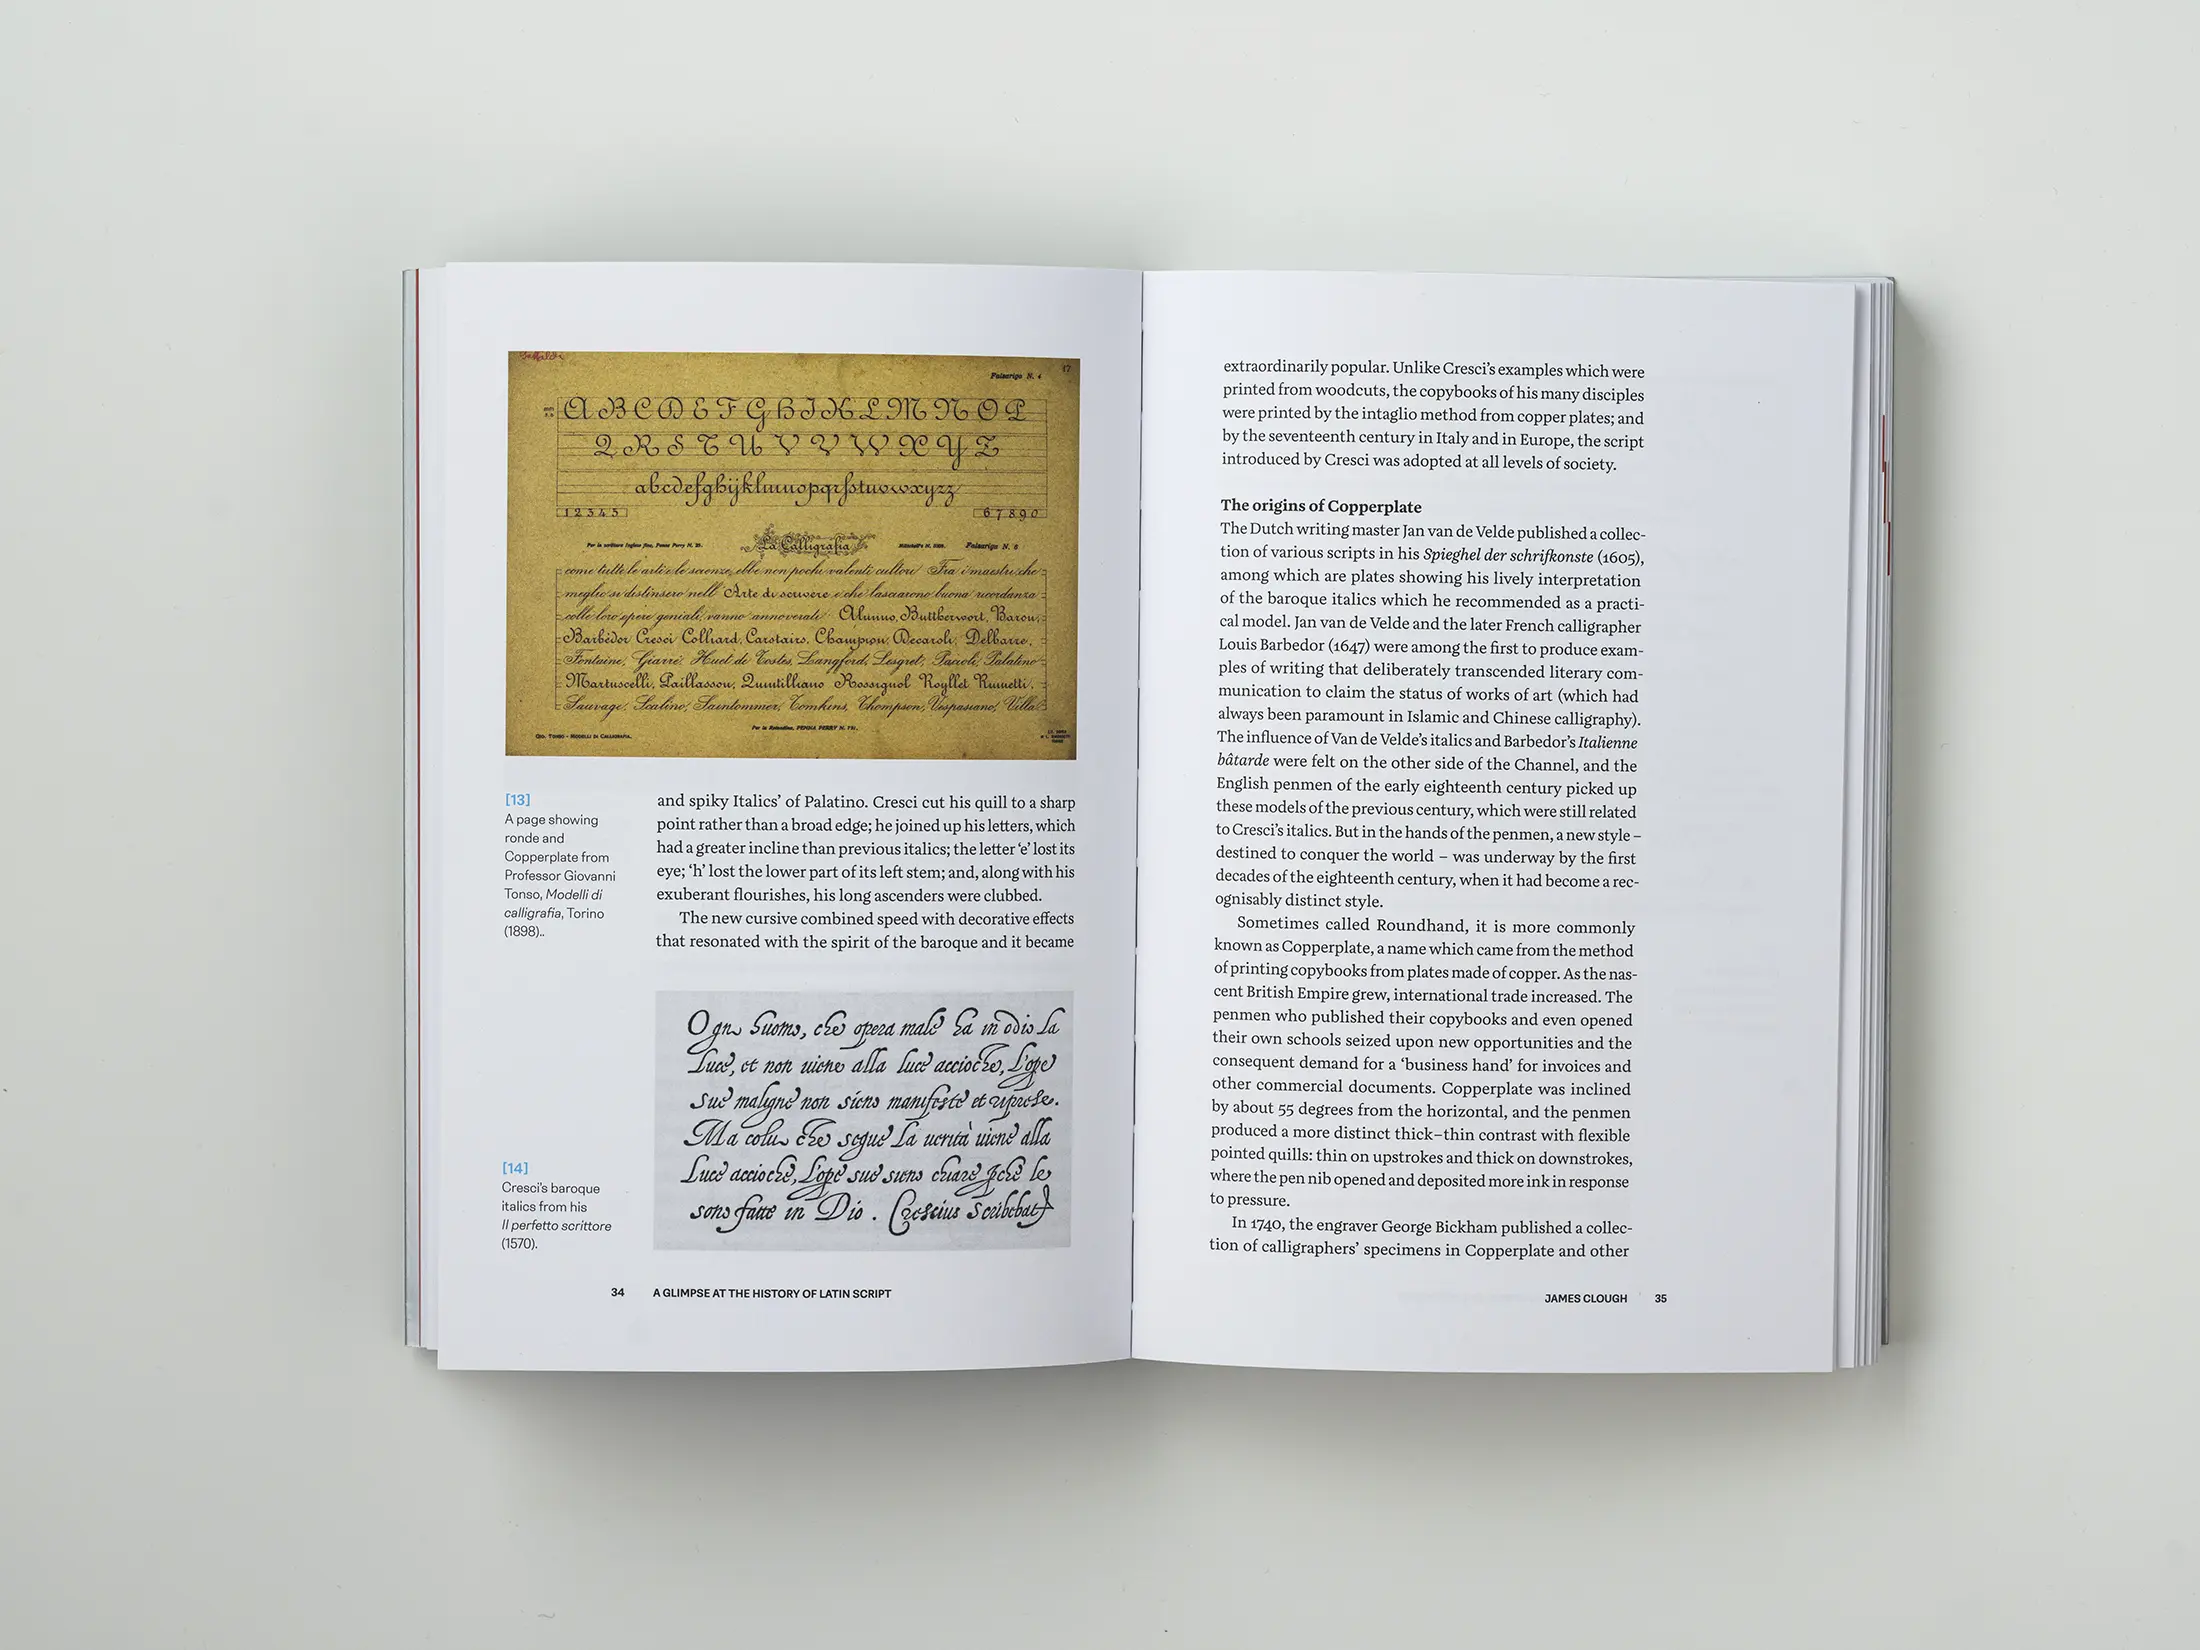 Falsarigo N. 4
17
A B C D E F G H I J K L M N O P
Q R S T U V V W X Y Z
abcdefghijklmnopqrsstuvwxyzz
1 2 3 4 5
6 7 8 9 0
Per lo scrittore Inglese fine, Penna Perry N. 25.
La Calligrafia
Falsarigo N. 6
come tutte le arti e le scienze, ebbe non pochi valenti cultori Fra i maestri che
meglio si distinsero nell' Arte di scrivere e che lasciarono buona ricordanza
colle loro opere geniali, vanno annoverati Alunno, Buttherwort, Baron,
Barbèdor Cresci Colliard, Carstairs, Champion, Decaroli, Delbarre,
Fontaine, Giarrè, Huet de Tostes, Langford, Lesgret, Pacioli, Palatino
Martuscelli, Paillasson, Quintilliano Rossignol Royllet Ruinetti,
Sauvage, Scalino, Saintommer, Tomkins, Thompson, Vespasiano, Villa
Per la Rotondina, PENNA PERRY N. 791.
GIO. TONSO - MODELLI DI CALLIGRAFIA.
[13]
A page showing
ronde and
Copperplate from
Professor Giovanni
Tonso, Modelli di
calligrafia, Torino
(1898)..
and spiky Italics’ of Palatino. Cresci cut his quill to a sharp
point rather than a broad edge; he joined up his letters, which
had a greater incline than previous italics; the letter ‘e’ lost its
eye; ‘h’ lost the lower part of its left stem; and, along with his
exuberant flourishes, his long ascenders were clubbed.
The new cursive combined speed with decorative effects
that resonated with the spirit of the baroque and it became
Ogni huomo, che opera male ha in odio la
Luce, et non viene alla luce accioche, l'ope
sue maligne non sieno manifeste et riprese.
Ma colui che segue la uerità uiene alla
Luce accioche, l'ope sue sieno chiare pche le
sono fatte in Dio. Crescius Scribebat
[14]
Cresci’s baroque
italics from his
Il perfetto scrittore
(1570).
34 A GLIMPSE AT THE HISTORY OF LATIN SCRIPT
extraordinarily popular. Unlike Cresci’s examples which were
printed from woodcuts, the copybooks of his many disciples
were printed by the intaglio method from copper plates; and
by the seventeenth century in Italy and in Europe, the script
introduced by Cresci was adopted at all levels of society.
The origins of Copperplate
The Dutch writing master Jan van de Velde published a collec-
tion of various scripts in his Spieghel der schrifkonste (1605),
among which are plates showing his lively interpretation
of the baroque italics which he recommended as a practi-
cal model. Jan van de Velde and the later French calligrapher
Louis Barbedor (1647) were among the first to produce exam-
ples of writing that deliberately transcended literary com-
munication to claim the status of works of art (which had
always been paramount in Islamic and Chinese calligraphy).
The influence of Van de Velde’s italics and Barbedor’s Italienne
bâtarde were felt on the other side of the Channel, and the
English penmen of the early eighteenth century picked up
these models of the previous century, which were still related
to Cresci’s italics. But in the hands of the penmen, a new style –
destined to conquer the world – was underway by the first
decades of the eighteenth century, when it had become a rec-
ognisably distinct style.
Sometimes called Roundhand, it is more commonly
known as Copperplate, a name which came from the method
of printing copybooks from plates made of copper. As the nas-
cent British Empire grew, international trade increased. The
penmen who published their copybooks and even opened
their own schools seized upon new opportunities and the
consequent demand for a ‘business hand’ for invoices and
other commercial documents. Copperplate was inclined
by about 55 degrees from the horizontal, and the penmen
produced a more distinct thick–thin contrast with flexible
pointed quills: thin on upstrokes and thick on downstrokes,
where the pen nib opened and deposited more ink in response
to pressure.
In 1740, the engraver George Bickham published a collec-
tion of calligraphers’ specimens in Copperplate and other
JAMES CLOUGH 35